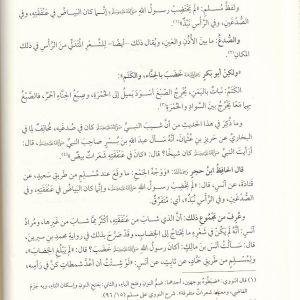 ولفظُ مُسلمٍ: «لَمْ يَخْتَضِبْ رسولُ اللهِ ﷺ، إنَّما كان البَيَاضُ في عَنْفَقَتِهِ، وفي
الصُّدْغَينِ، وفي الرَّأسِ نُبَذٌ»
والصُّدغُ: ما بينَ الأُذُنِ والعَينِ، ويُقال ذلك –أيضًا– للشَّعرِ المُتَدَلِّي مِنَ الرَّأسِ في ذلك
المكانِ
«ولكنْ أبو بكرٍ خَضَبَ بالحِنَّاءِ، والكَتَمِ»:
والكَتَمُ: نباتٌ باليَمَنِ، يُخرِجُ الصِّبغَ أسوَدَ يَميلُ إلى الحُمرَةِ، وصِبغُ الحِنَّاءِ أحمَرُ، فالصَّبغُ
بِهِما معًا يَخرُجُ بينَ السَّوادِ والحُمرَةِ
وما ذُكِرَ في هذا الحديثِ مِن أنَّ شَيبَ النبيِّ ﷺ كان في صُدغَيهِ، مُخالِفٌ لِما في
البخاريِّ عن حَرِيزِ بنِ عُثمانَ، أنَّه سألَ عبدَ اللهِ بنَ بُسرٍ صاحبَ النبيِّ ﷺ قال:
أرأيتَ النبيَّ ﷺ كان شيخًا؟ قال: «كان في عَنْفَقَتِهِ شَعَراتٌ بِيضٌ»
قال الحافظُ ابنُ حجرٍ: «وَوَجهُ الجَمعِ: ما وَقَعَ عندَ مُسلمٍ مِن طريقِ سعيدٍ، عن
قتادةَ، عن أنسٍ، قال: «لَمْ يَخضِبْ رسولُ اللهِ ﷺ، وإنَّما كان البَيَاضُ في عَنْفَقَتِهِ، وفي
الصُّدغَينِ، وفي الرَّأسِ نُبَذٌ»، أي: مُتفرِّقٌ.
وعُرِفَ مِن مَجموعِ ذلك: أنَّ الذي شابَ مِن عَنْفَقَتِهِ أكثَرُ مِمَّا شابَ مِن غيرِها، ومُرادُ
أنسٍ: أنَّه لَمْ يكنْ في شَعرِهِ ما يحتاجُ إلى الخِضابِ، وقد صَرَّحَ بذلك في روايةِ محمدِ بنِ سيرينَ،
قال: سألتُ أنسَ بنَ مالكٍ: أكان رسولُ اللهِ ﷺ خَضَبَ؟ قال: «لَمْ يَبلُغِ الخِضابَ»،
ولمسلمٍ مِن طريقِ حمَّادٍ، عن ثابتٍ، عن أنسٍ: «لَوْ شِئتُ أنْ أَعُدَّ شَمَطاتٍ كُنَّ في رأسِهِ،
(١) قال النووي: «ضبطوه بوجهين، أحدهما: ضم النون وفتح الباء، والثاني: بفتح النون وإسكان الباء، وبه جزم
القاضي، ومعناه: شعرات متفرقة». شرح النووي على مسلم (١٥/ ٩٦)